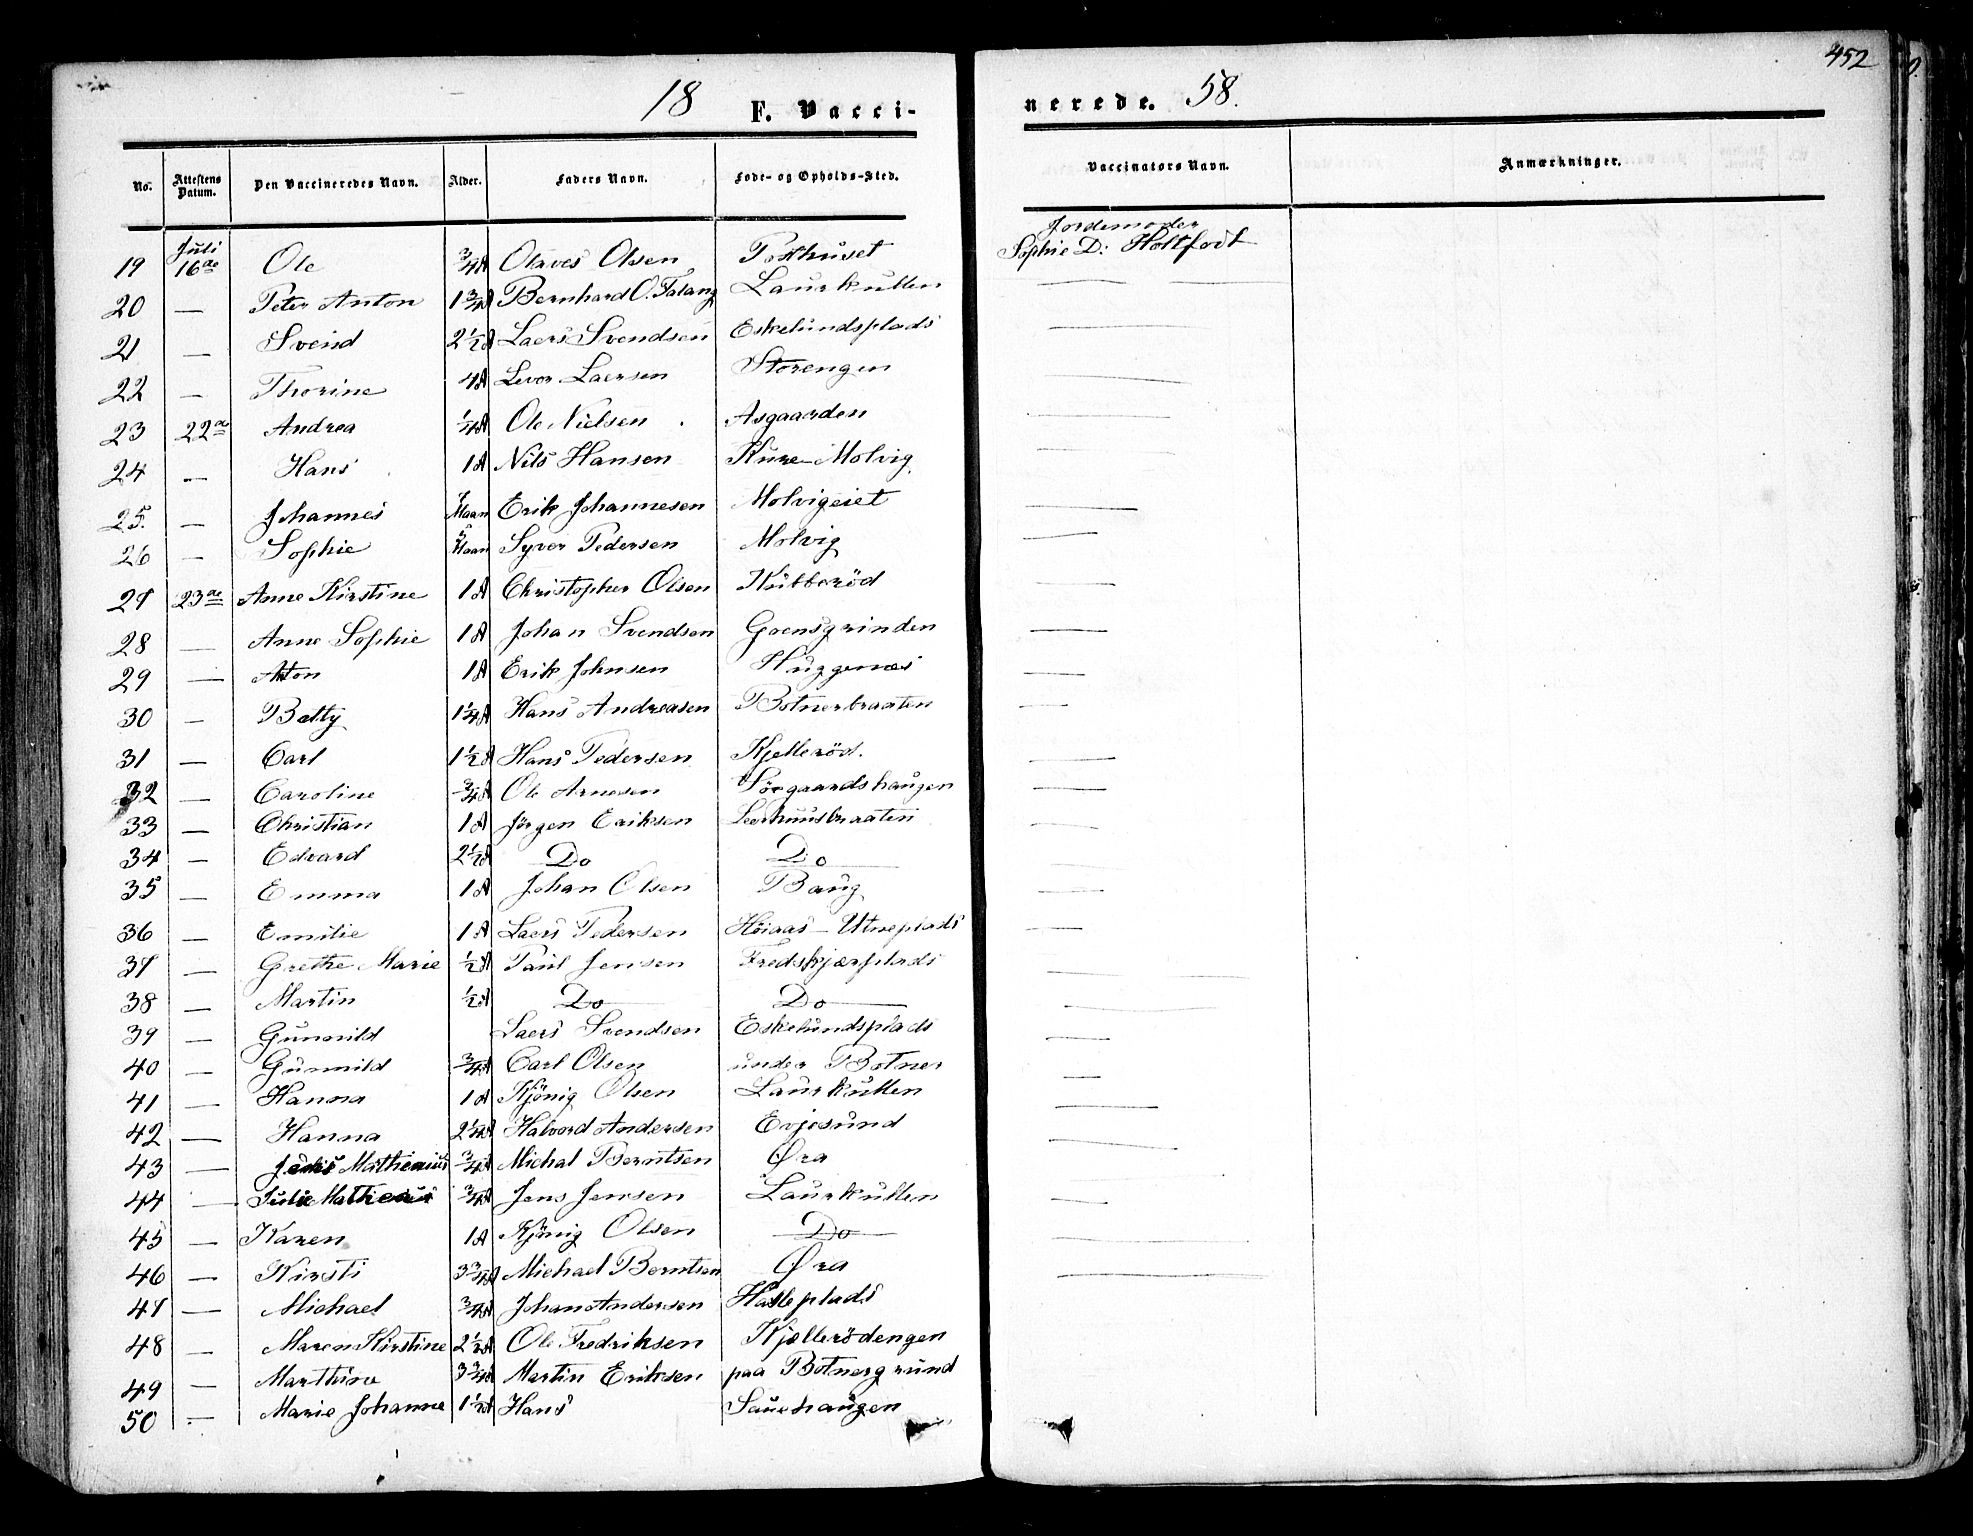 452
18 F. Vacci-
nerede. 58.
No. Attestens Datum. Den Vaccineredes Navn. Alder. Faders Navn. Føde- og Opholds-Sted. Vaccinators Navn. Anmærkninger.
19 Juli 16de Ole 3/4 A Olaves Olsen Posthuset Jordemoder Sophie D: Holtfodt
20 — Peter Anton 1 3/4 A Bernhard O. Talang Laurkullen — —
21 — Svend 2 1/2 A Laers Svendsen Eskelundsplads —
22 — Thorine 4 A Levor Laersen Storengen —
23 22de Andrea 1/4 A Ole Nielsen Asgaarden —
24 — Hans 1 A Nils Hansen Kure-Molvig —
25. — Johannes Maan Erik Johannesen Molvigeiet —
26 — Sophie 5 Maan Syver Pedersen Molvig —
27 23de Anne Kirstine 1 A Christopher Olsen Kubberöd —
28 — Anne Sophie 1 A Johan Svendsen Goensgrinden —
29 — Anton 1 A Erik Johnsen Huggenæs —
30 — Betty 1 1/4 A Hans Andreasen Botnerbraaten —
31 — Carl 1 1/2 A Hans Pedersen Kjelleröd. —
32 — Caroline 3/4 A Ole Arnesen Sörgaardshaugen —
33 — Christian 1 A Jörgen Eriksen Leerhuusbraaten —
34 — Edvard 2 1/2 A Do Do —
35 — Emma 1 A Johan Olsen Baug —
36 — Emilie 1 A Laers Pedersen Höiaas - Utneplads —
37 — Grethe Marie 1/2 A Paul Jensen Fredskjærplads — —
38 — Martin 1/2 A Do Do — —
39 — Gunnild Laers Svendsen Eskelundsplads —
40 — Gunnild 3/4 A Carl Olsen under Botner —
41 — Hanna 1 A Kjönig Olsen Laurkullen —
42 — Hanna 2 1/4 A Halvord Andersen Evjesund —
43 — Mathenius 3/4 A Michal Berntsen Øra —
44 — Julie 3/4 A Jens Jensen Laurkullen —
45 — Karen 1 A Kjönig Olsen Do —
46 — Kirsti 3 3/4 A Michael Berntsen Øra —
47 — Michael 3/4 A Johan Andersen Halleplads
48 — Maren Kirstine 2 1/2 A Ole Fredriksen Kjellerödengen
49 — Marthine 3 3/4 A Martin Eriksen paa Botnergrund
50 — Marie Johanne 1 1/2 A Hans Sauehaugen